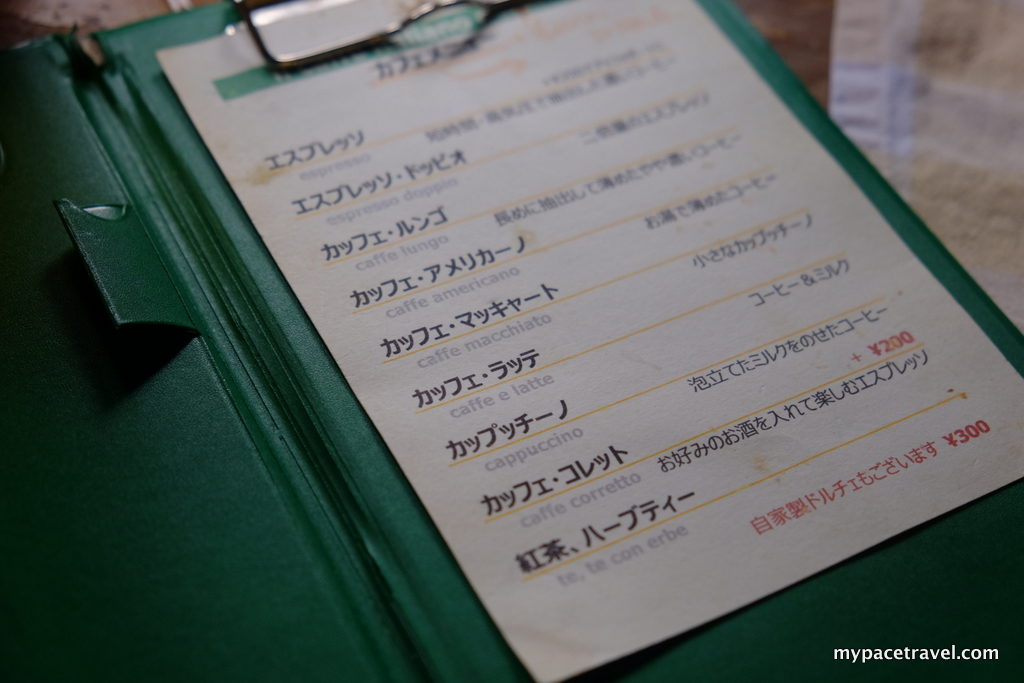 カフェメニュー
エスプレッソ 短時間・蒸気圧で抽出した濃いコーヒー
espresso
エスプレッソ・ドッピオ 二倍量のエスプレッソ
espresso doppio
カッフェ・ルンゴ 長めに抽出して薄めたやや濃いコーヒー
caffe lungo
カッフェ・アメリカーノ お湯で薄めたコーヒー
caffe americano
カッフェ・マッキャート 小さなカップッチーノ
caffe macchiato
カッフェ・ラッテ コーヒー&ミルク
caffe e latte
カップッチーノ 泡立てたミルクをのせたコーヒー
cappuccino + ¥200
カッフェ・コレット お好みのお酒を入れて楽しむエスプレッソ
caffe corretto
紅茶、ハーブティー
te, te con erbe
自家製ドルチェもございます ¥300
mypacetravel.com